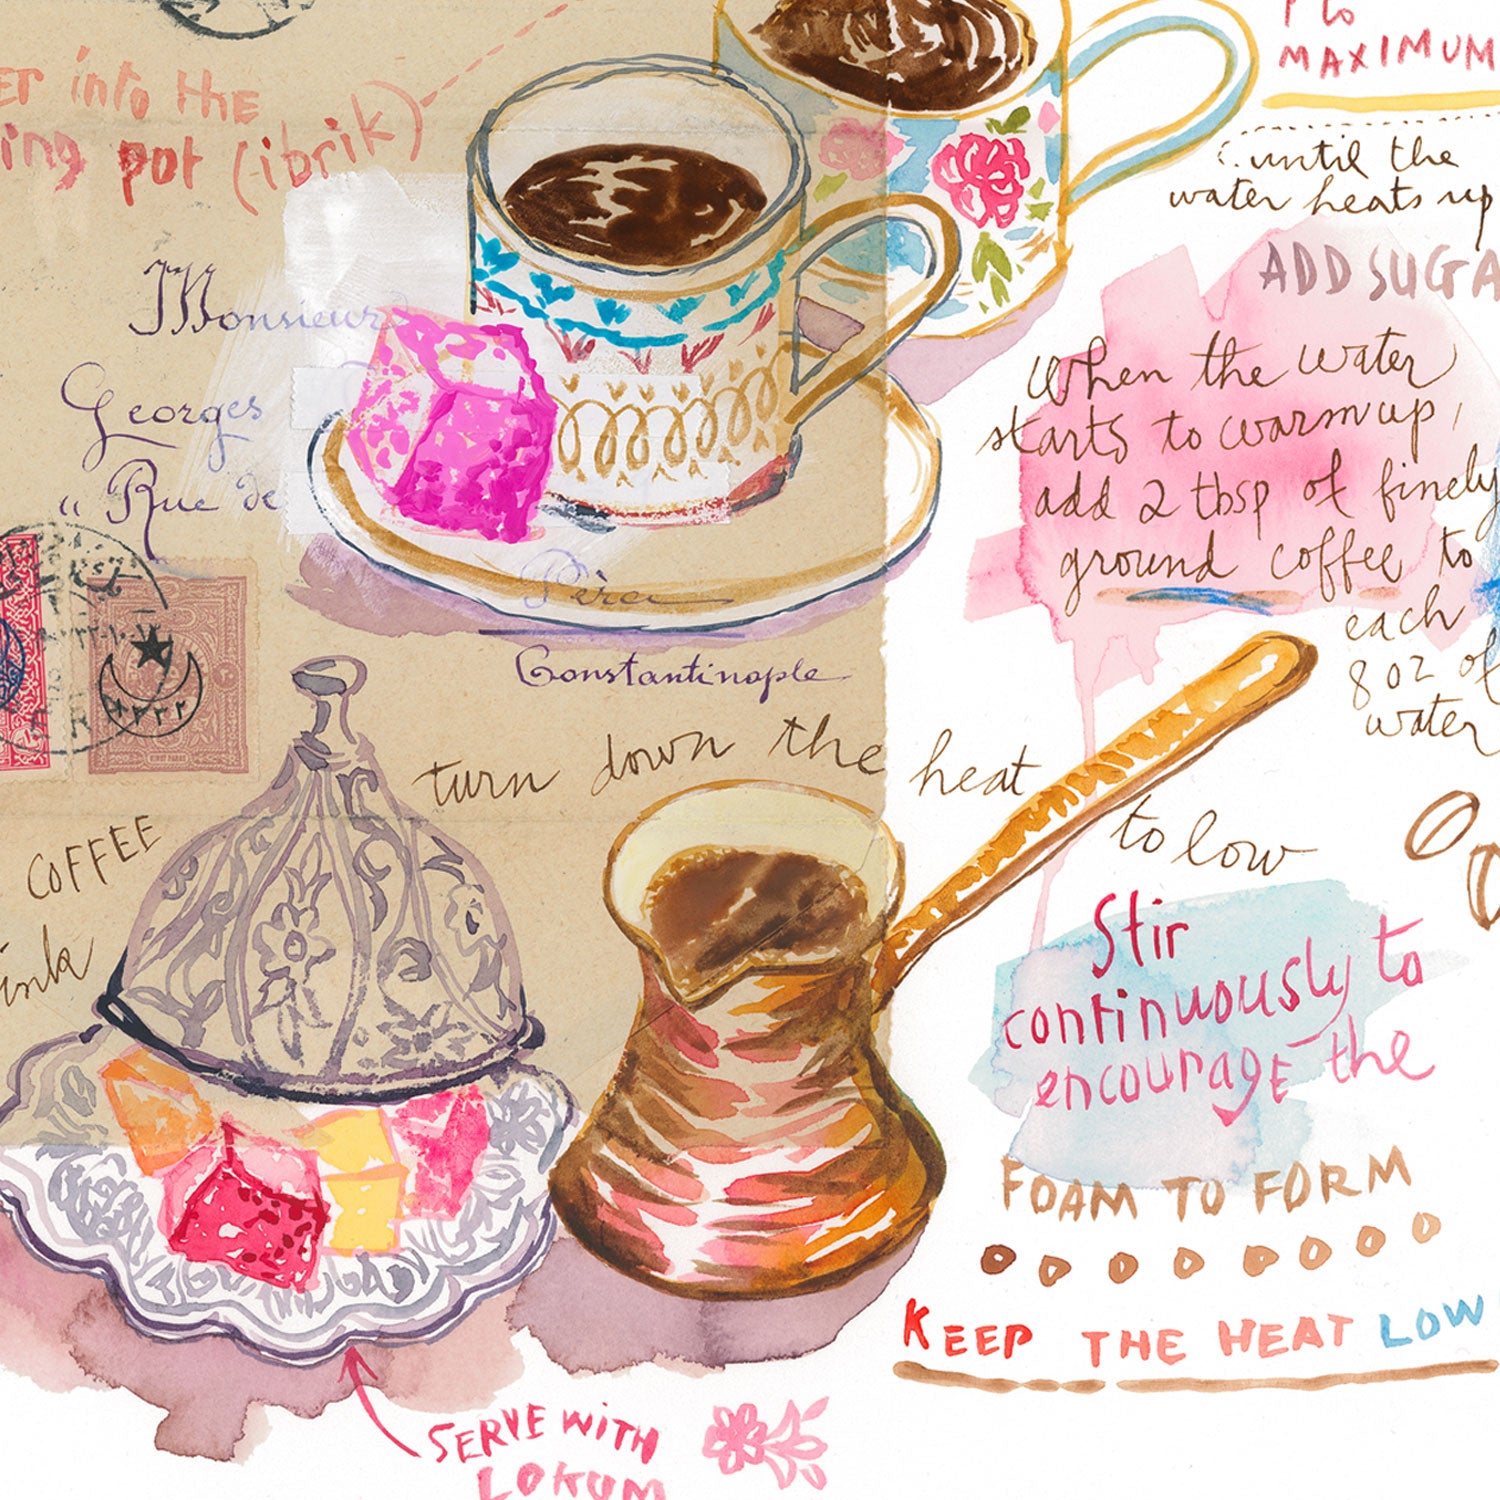 ER into tHE
ing pot (ibrik)
1 to
MAXIMUM
until the
water heats up
ADD SUGA
When the water
starts to warm up,
add 2 tbsp of finely
ground coffee to
each
8 oz of
water
Monsieur
Georges
" Rue de
Péra
Constantinople
turn down the heat
to low
COFFEE
ink
Stir
continuously to
encourage the
FOAM TO FORM
KEEP THE HEAT LOW
SERVE WiTH
LOKUM